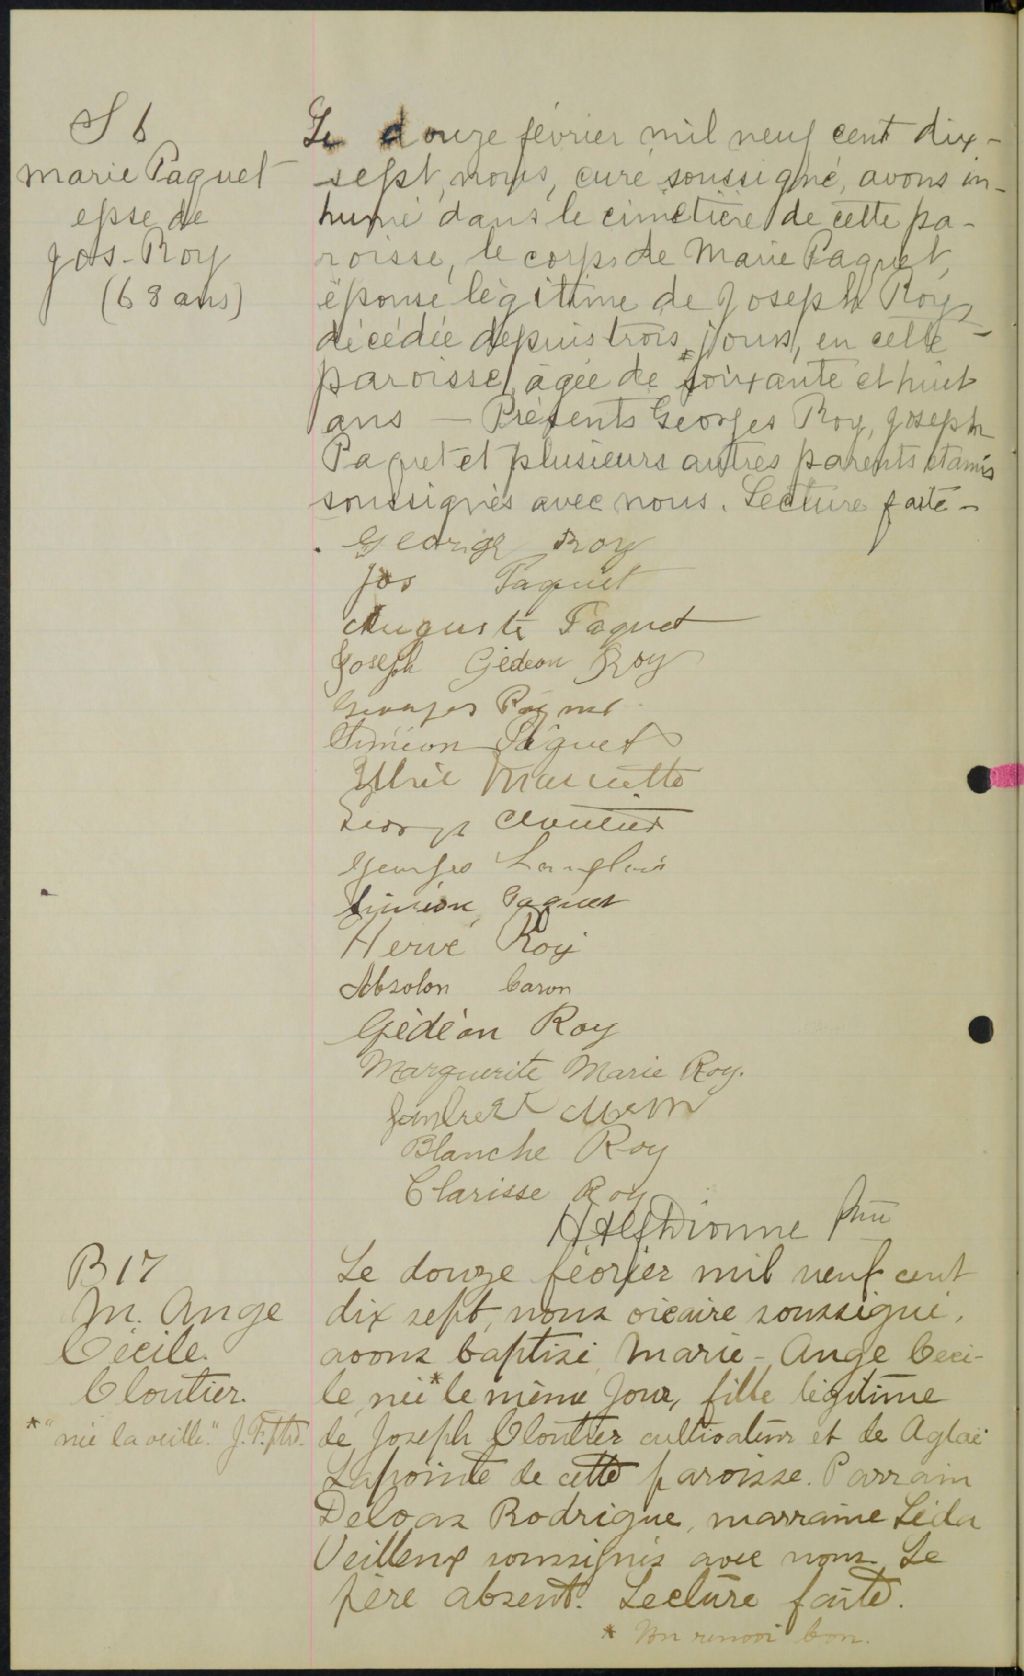 S 6
Marie Paquet
epse de
Jos. Roy
(68 ans)
Le douze février mil neuf cent dix-
sept, nous, curé soussigné, avons in-
humé dans le cimetière de cette pa-
roisse, le corps de Marie Paquet,
épouse légitime de Joseph Roy,
décédée depuis trois jours, en cette
paroisse, agée de soixante et huit
ans — Présents Georges Roy, Joseph
Paquet et plusieurs autres parents et amis
soussignés avec nous. Lecture faite -
George Roy
Jos Paquet
Auguste Paquet
Joseph Gédeon Roy
Georges
Siméon Paquet
Marcotte
George Cloutier
Georges Langlois
Siméon Paquet
Hervé Roy
Absolon Caron
Gédéon Roy
Marguerite Marie Roy.
Blanche Roy
Clarisse Roy
Dionne Ptre
B 17
M. Ange
Cécile.
Cloutier.
* "née la veille." J. F. ptre.
Le douze février mil neuf cent
dix sept, nous vicaire soussigné,
avons baptisé Marie-Ange Céci-
le, née * le même jour, fille légitime
de Joseph Cloutier cultivateur et de Aglaé
Lapointe de cette paroisse. Parrain
Rodrigue, marraine Léda
Veilleux soussignés avec nous. Le
père absent. Lecture faite.
* Un renvoi bon.